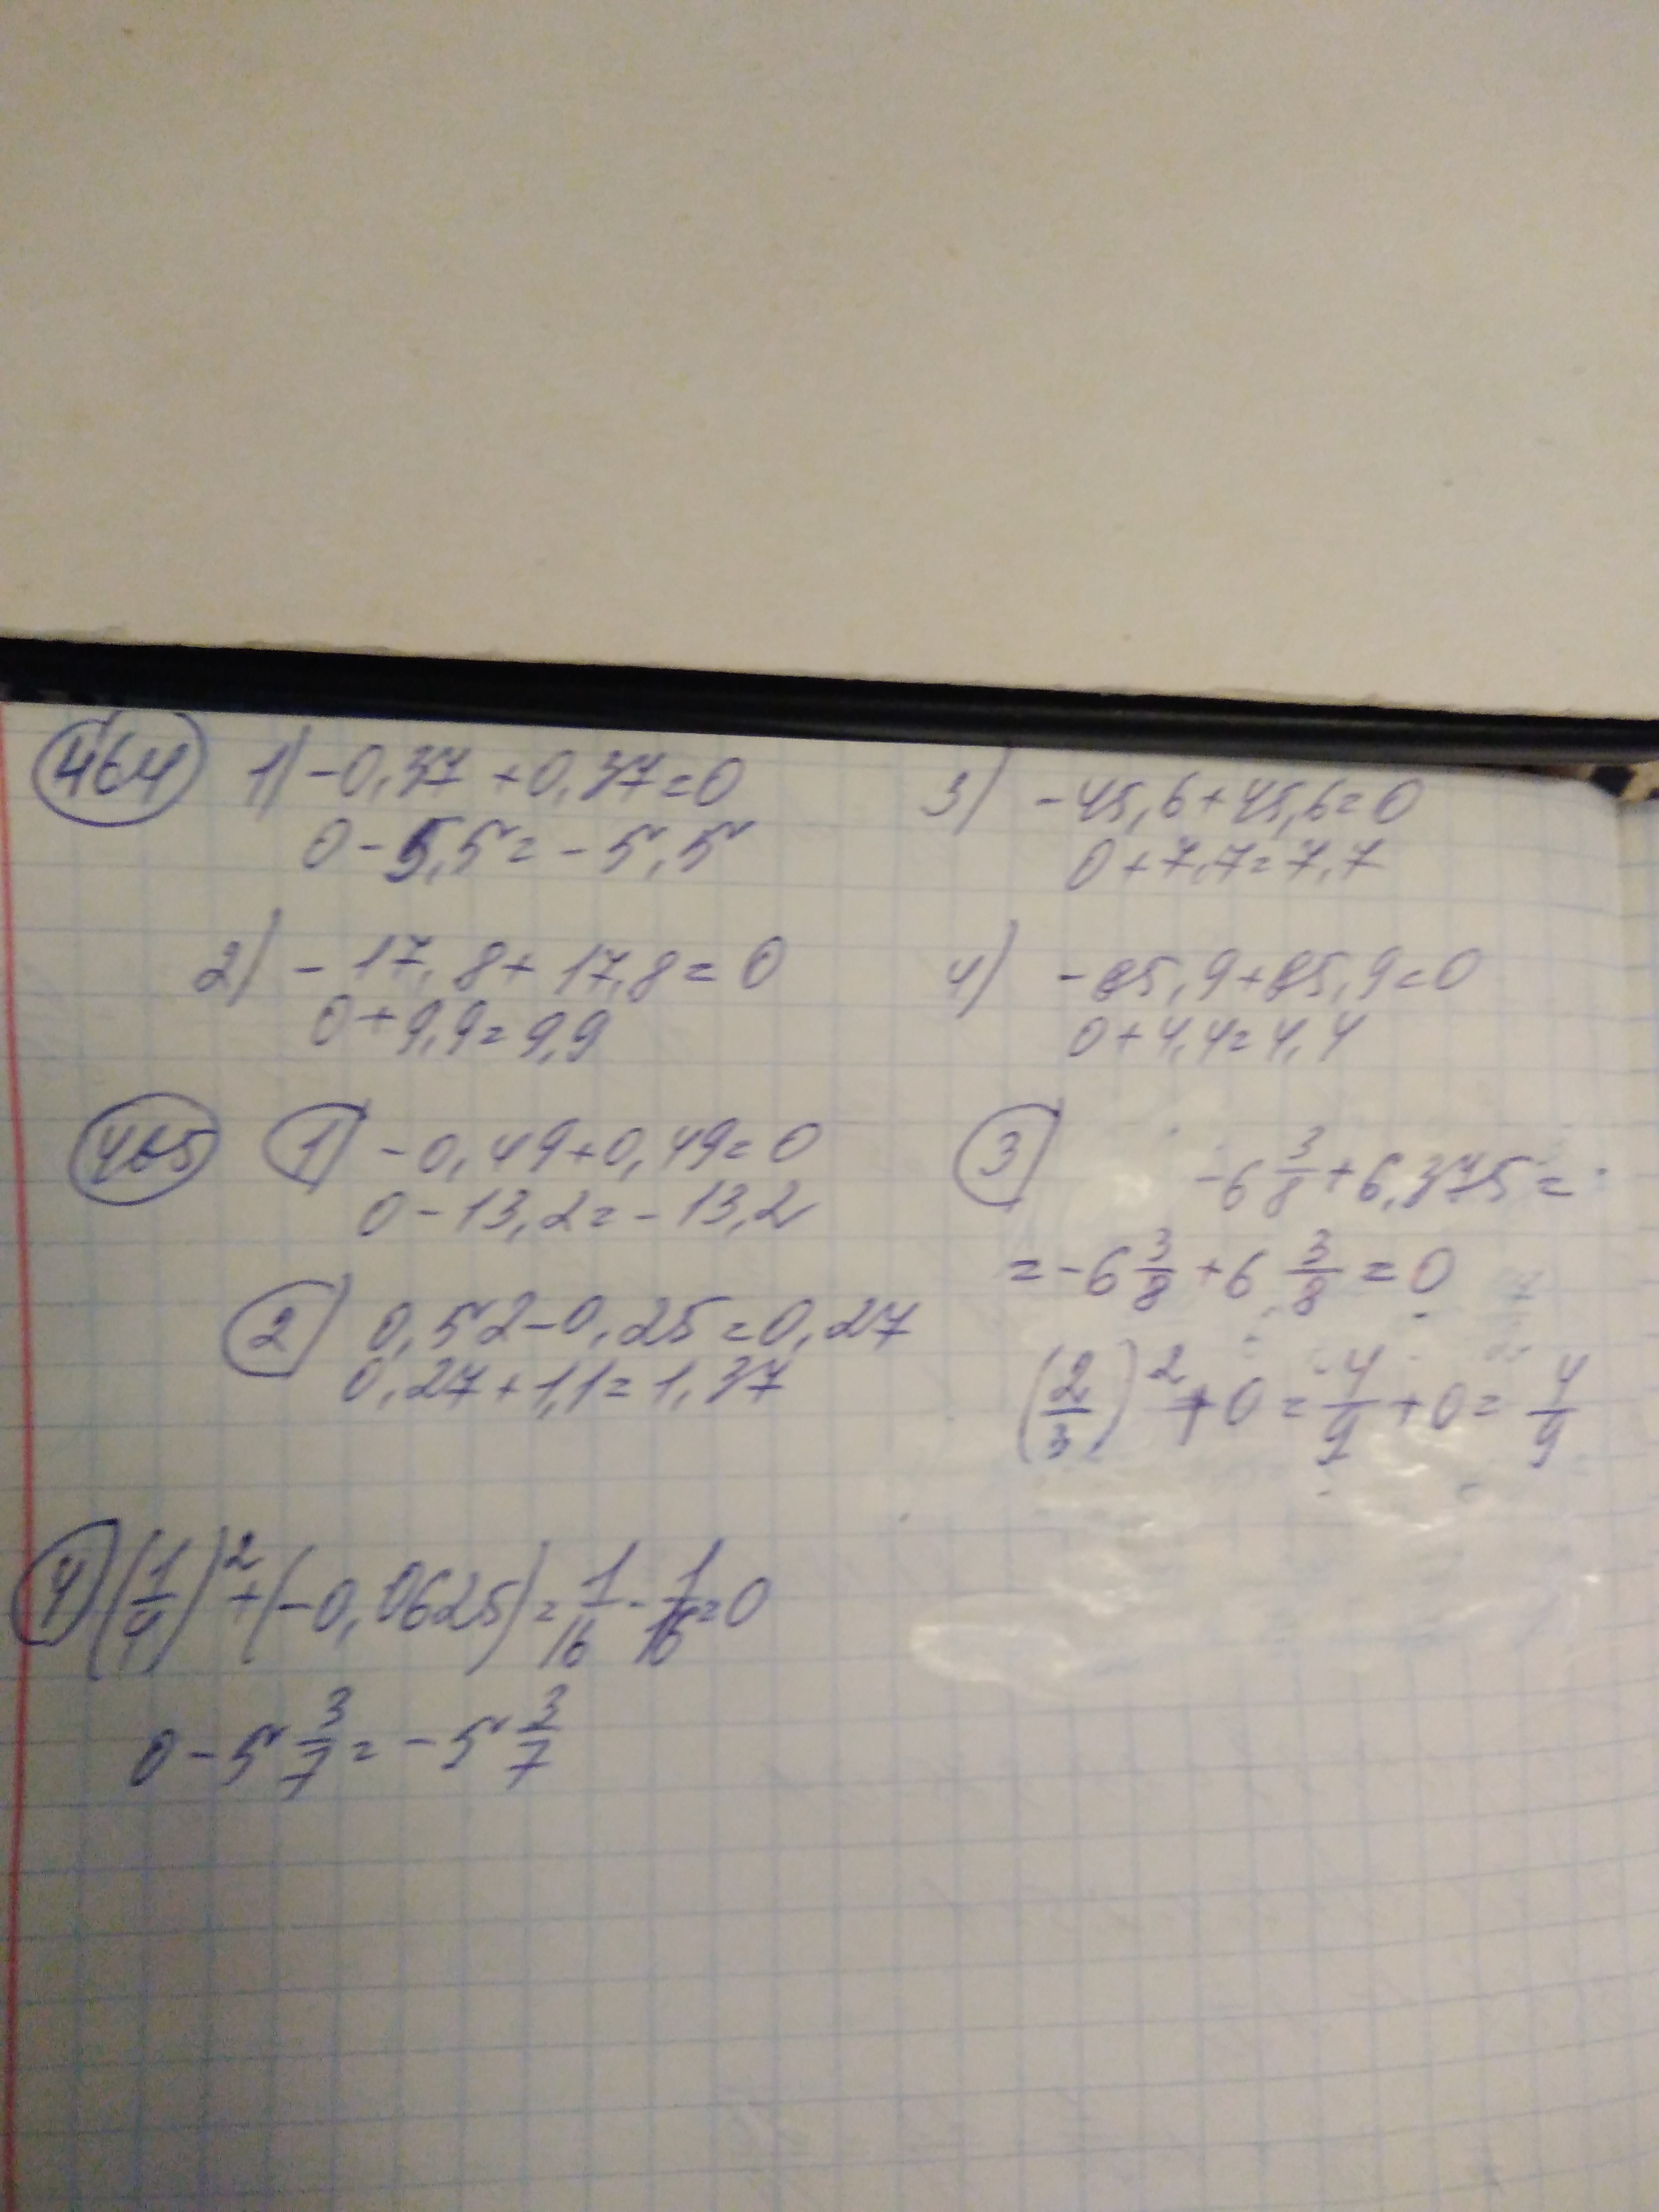 464 1) -0,37 + 0,37 = 0
0 - 5,5 = -5,5
2) -17,8 + 17,8 = 0
0 + 9,9 = 9,9
3) -45,6 + 45,6 = 0
0 + 7,7 = 7,7
4) -85,9 + 85,9 = 0
0 + 4,4 = 4,4
465 1) -0,49 + 0,49 = 0
0 - 13,2 = -13,2
2) 0,52 - 0,25 = 0,27
0,27 + 1,1 = 1,37
3) -6 3/8 + 6,375 =
= -6 3/8 + 6 3/8 = 0
(2/3)² + 0 = 4/9 + 0 = 4/9
4) (1/4)² + (-0,0625) = 1/16 - 1/16 = 0
0 - 5 3/7 = -5 3/7